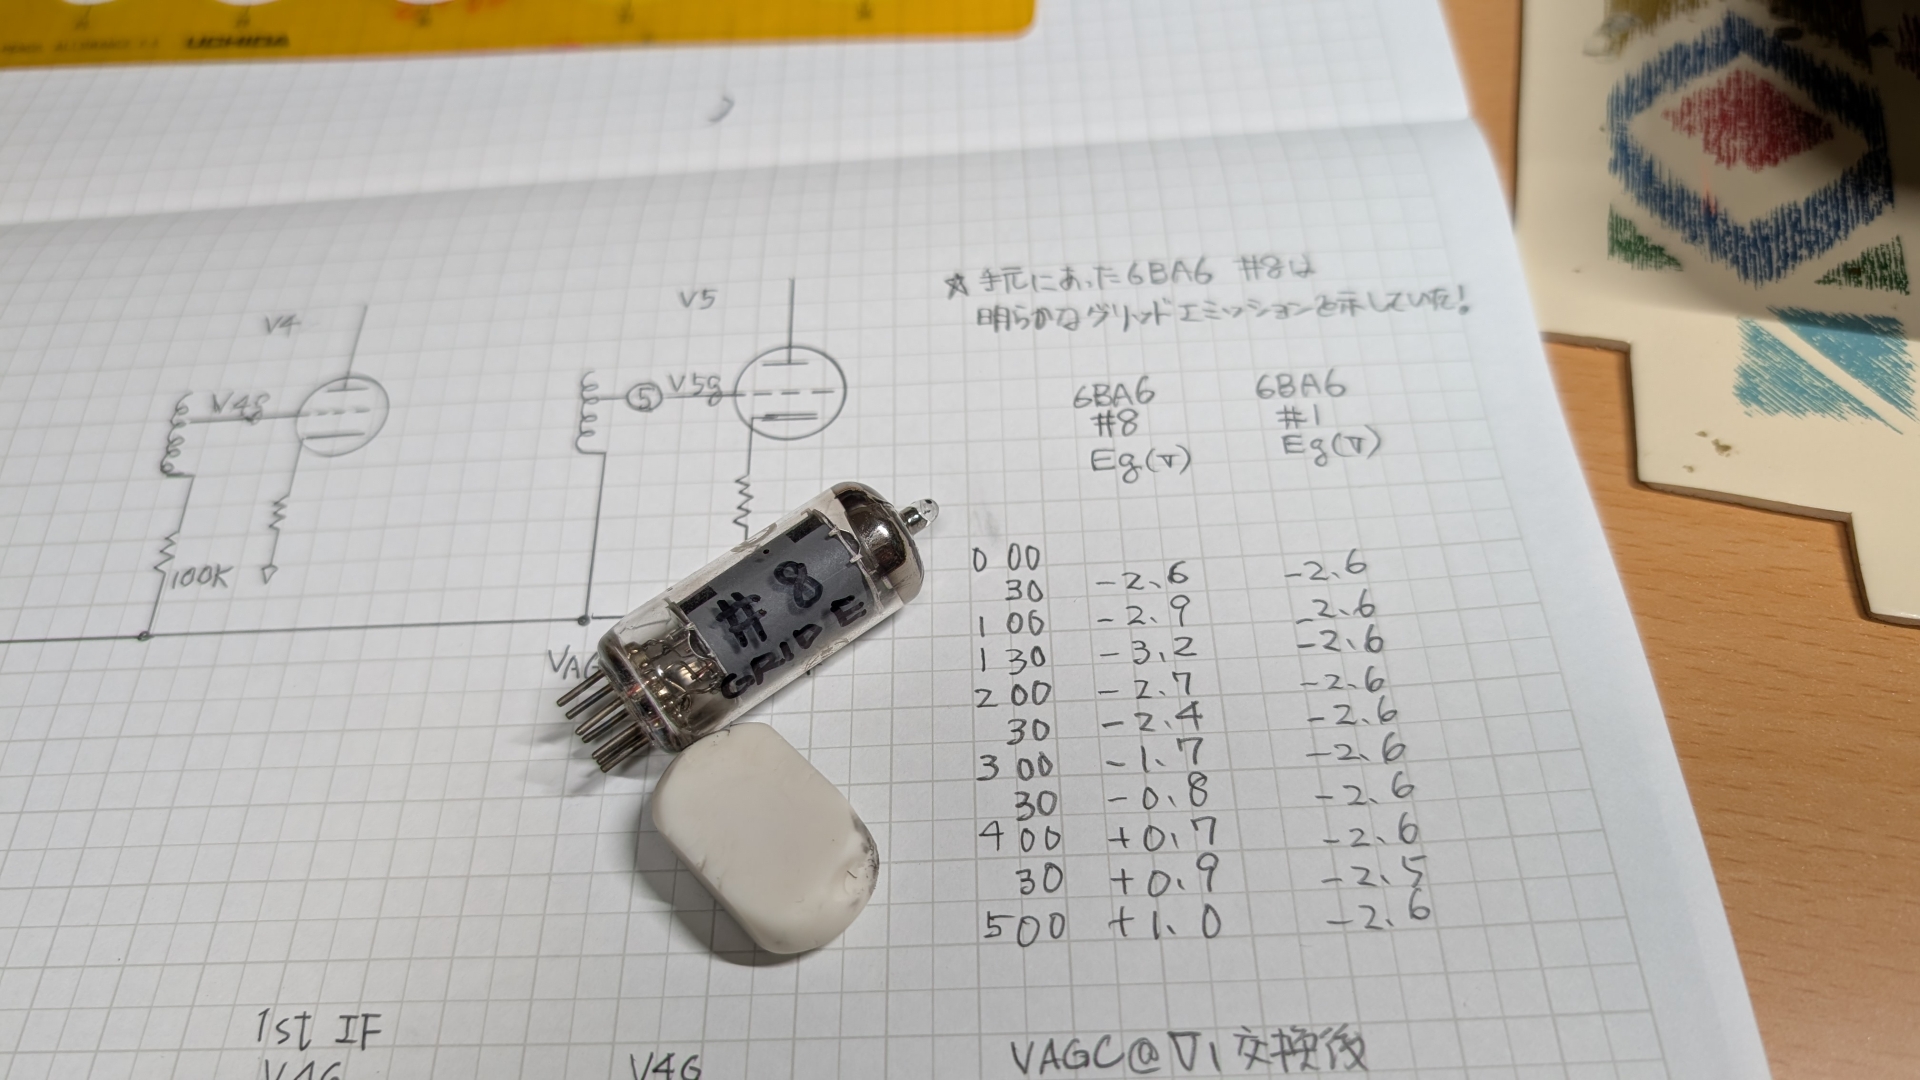 UCHIDA
V4
V5
V4g
⑤ V5g
100K
VAG
#8
GRID E
☆ 手元にあった6BA6 #8は
明らかなグリッドエミッションを示していた!
6BA6 6BA6
#8 #1
Eg(V) Eg(V)
0 00
30 -2.6 -2.6
1 00 -2.9 -2.6
1 30 -3.2 -2.6
2 00 -2.7 -2.6
30 -2.4 -2.6
3 00 -1.7 -2.6
30 -0.8 -2.6
4 00 +0.7 -2.6
30 +0.9 -2.5
5 00 +1.0 -2.6
1st IF
V4G V4G
VAGC@V1 交換後